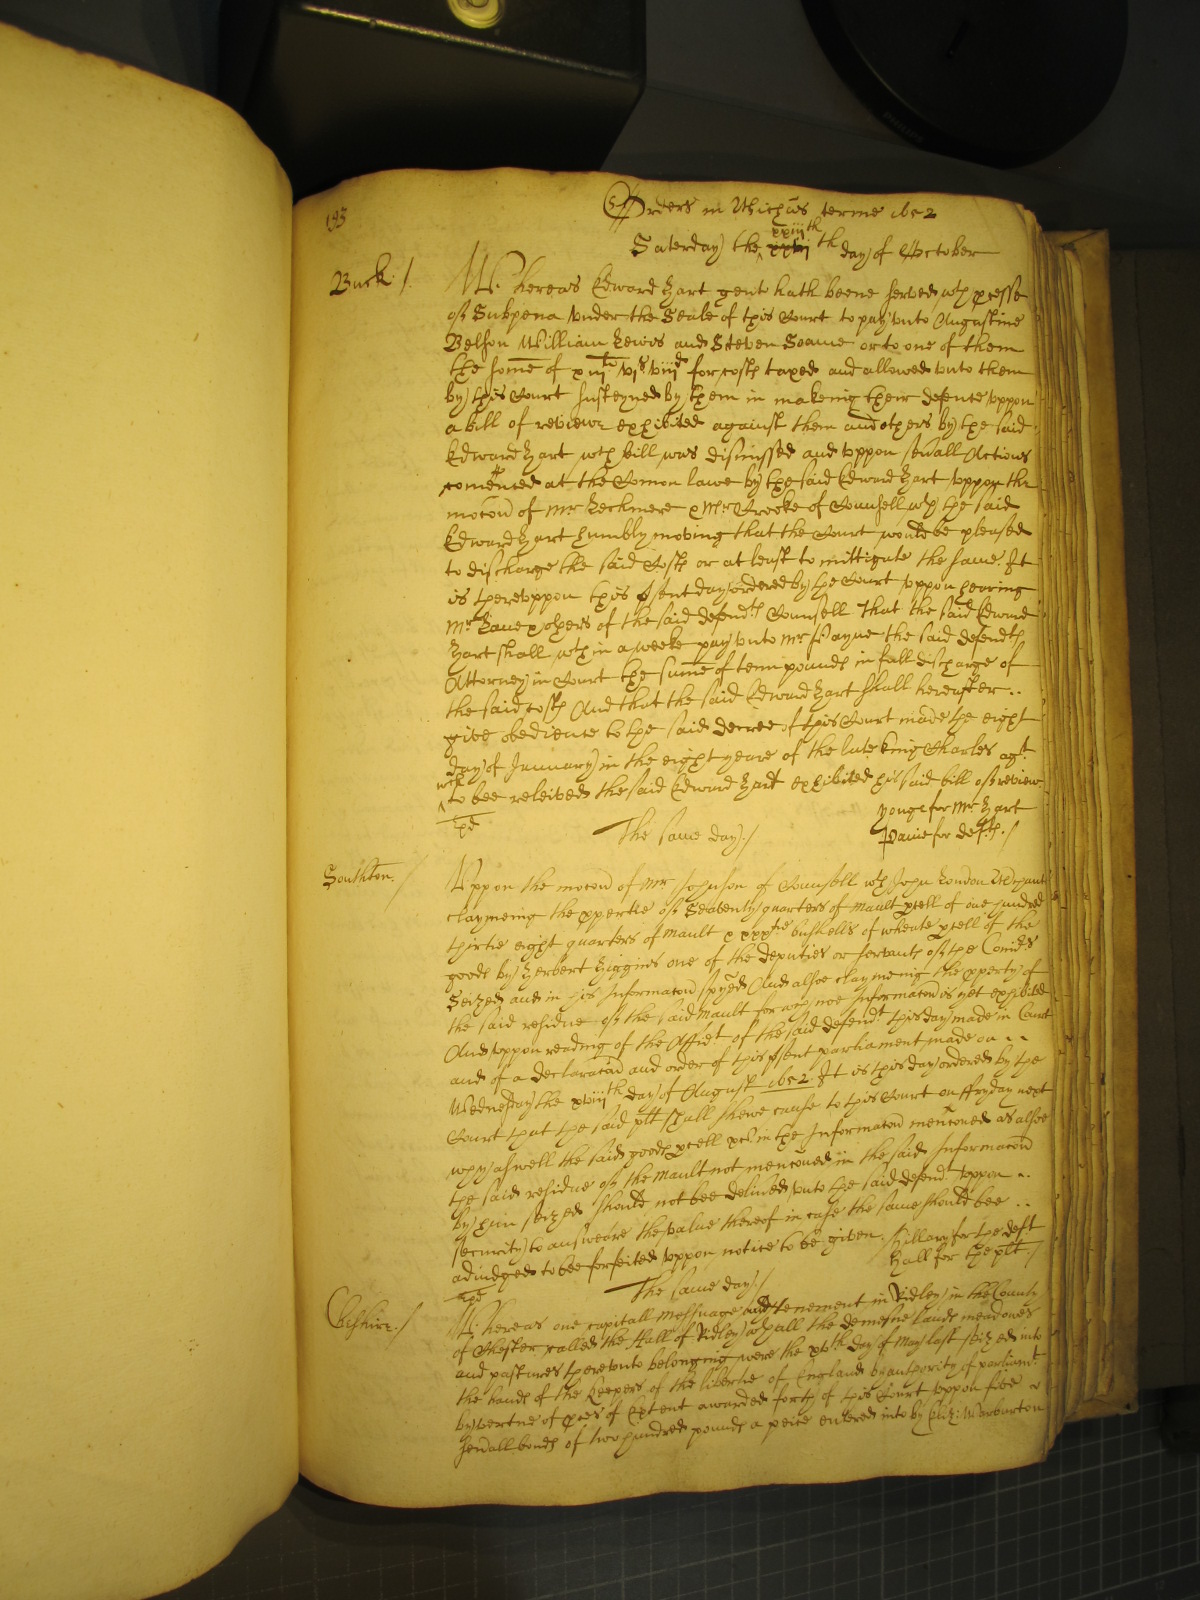 193
Orders in Michās terme 1652
xxiijth
Saterday the xxviijth day of October
Buck: /.
Whereas Edward Hart gent hath beene served wth pcesse
of Subpena vnder the Seale of this Court to pay vnto Augustine
Belson William Lewis and Steven Soame or to one of them
the some of xiijli vjs viijd for costs taxed and allowed vnto them
by this Court susteyned by them in makeing their defence vppon
a bill of reviewe exhibited against them and others by the said
Edward Hart wch bill was dismissed and vppon sevall Actions
comenced at the Comon lawe by the said Edward Hart vppon the
mocōn of Mr Lechmere & Mr Crooke of Counsell wth the said
Edward Hart humbly moving that the Court would be pleased
to discharge the said Costs or at least to mittigate the same. It
is therevppon this psent day ordered by the Court vppon hearing
Mr & others of the said defendts Counsell That the said Edward
Hart shall wthin a weeke pay vnto Mr Payne the said defendts
Attorney in Court the sume of tenn pounds in full discharge of
the said costs And that the said Edward Hart shall hereafter ..
give obedience to the said decree of this Court made the eight
day of January in the eight yeare of the late king Charles agt
wch
to bee releived the said Edward Hart exhibited his said bill of review
Yonge for Mr Hart
The same day. /
for defts. /
Southton. /
Vppon the mocōn of Mr Johnson of Counsell wth John London Mrchant
claymeing the pptie of Seaventy quarters of mault pcell of one hundred
thirtie eight quarters of mault & bushells of wheate pcell of the
goods by Herbert Higgins one of the deputies or servants of the Comrs
Seized and in his Informacōn spyed And alsoe claymeing the pperty of
the said residue of the said mault for wch noe Informacōn is yet exhibited
And vppon reading of the Affidt of the said defendt this day made in Court
and of a declaracōn and order of this psent parliament made on ..
Wednesday the xviijth day of August 1652 It is this day ordered by the
Court that the said plt shall shewe cause to this Court on ffryday next
why aswell the said goods pcell in the Informacōn mencōned as alsoe
the said residue of the mault not mencōned in the said Informacōn
by him seized should not bee delived vnto the said defendt vppon ..
security to answeare the value thereof in case the same should bee ..
adiudged to bee forfeited vppon notice to be given. Hillary for the deft
Hall for the plt. /
The same day. /
Cheshire. /
Whereas one capitall messuage and tenement in Ridley in the County
of Chester called the Hall of Ridley wth all the demesne lands meadowes
and pastures therevnto belonging were the xvth day of May last seized into
the hands of the Keepers of the libertie of England by authority of parliamt
by vertue of pces of Extent awarded forth of this Court vppon five
sevall bonds of two hundred pounds a peice entered into by Eliz: Warburton